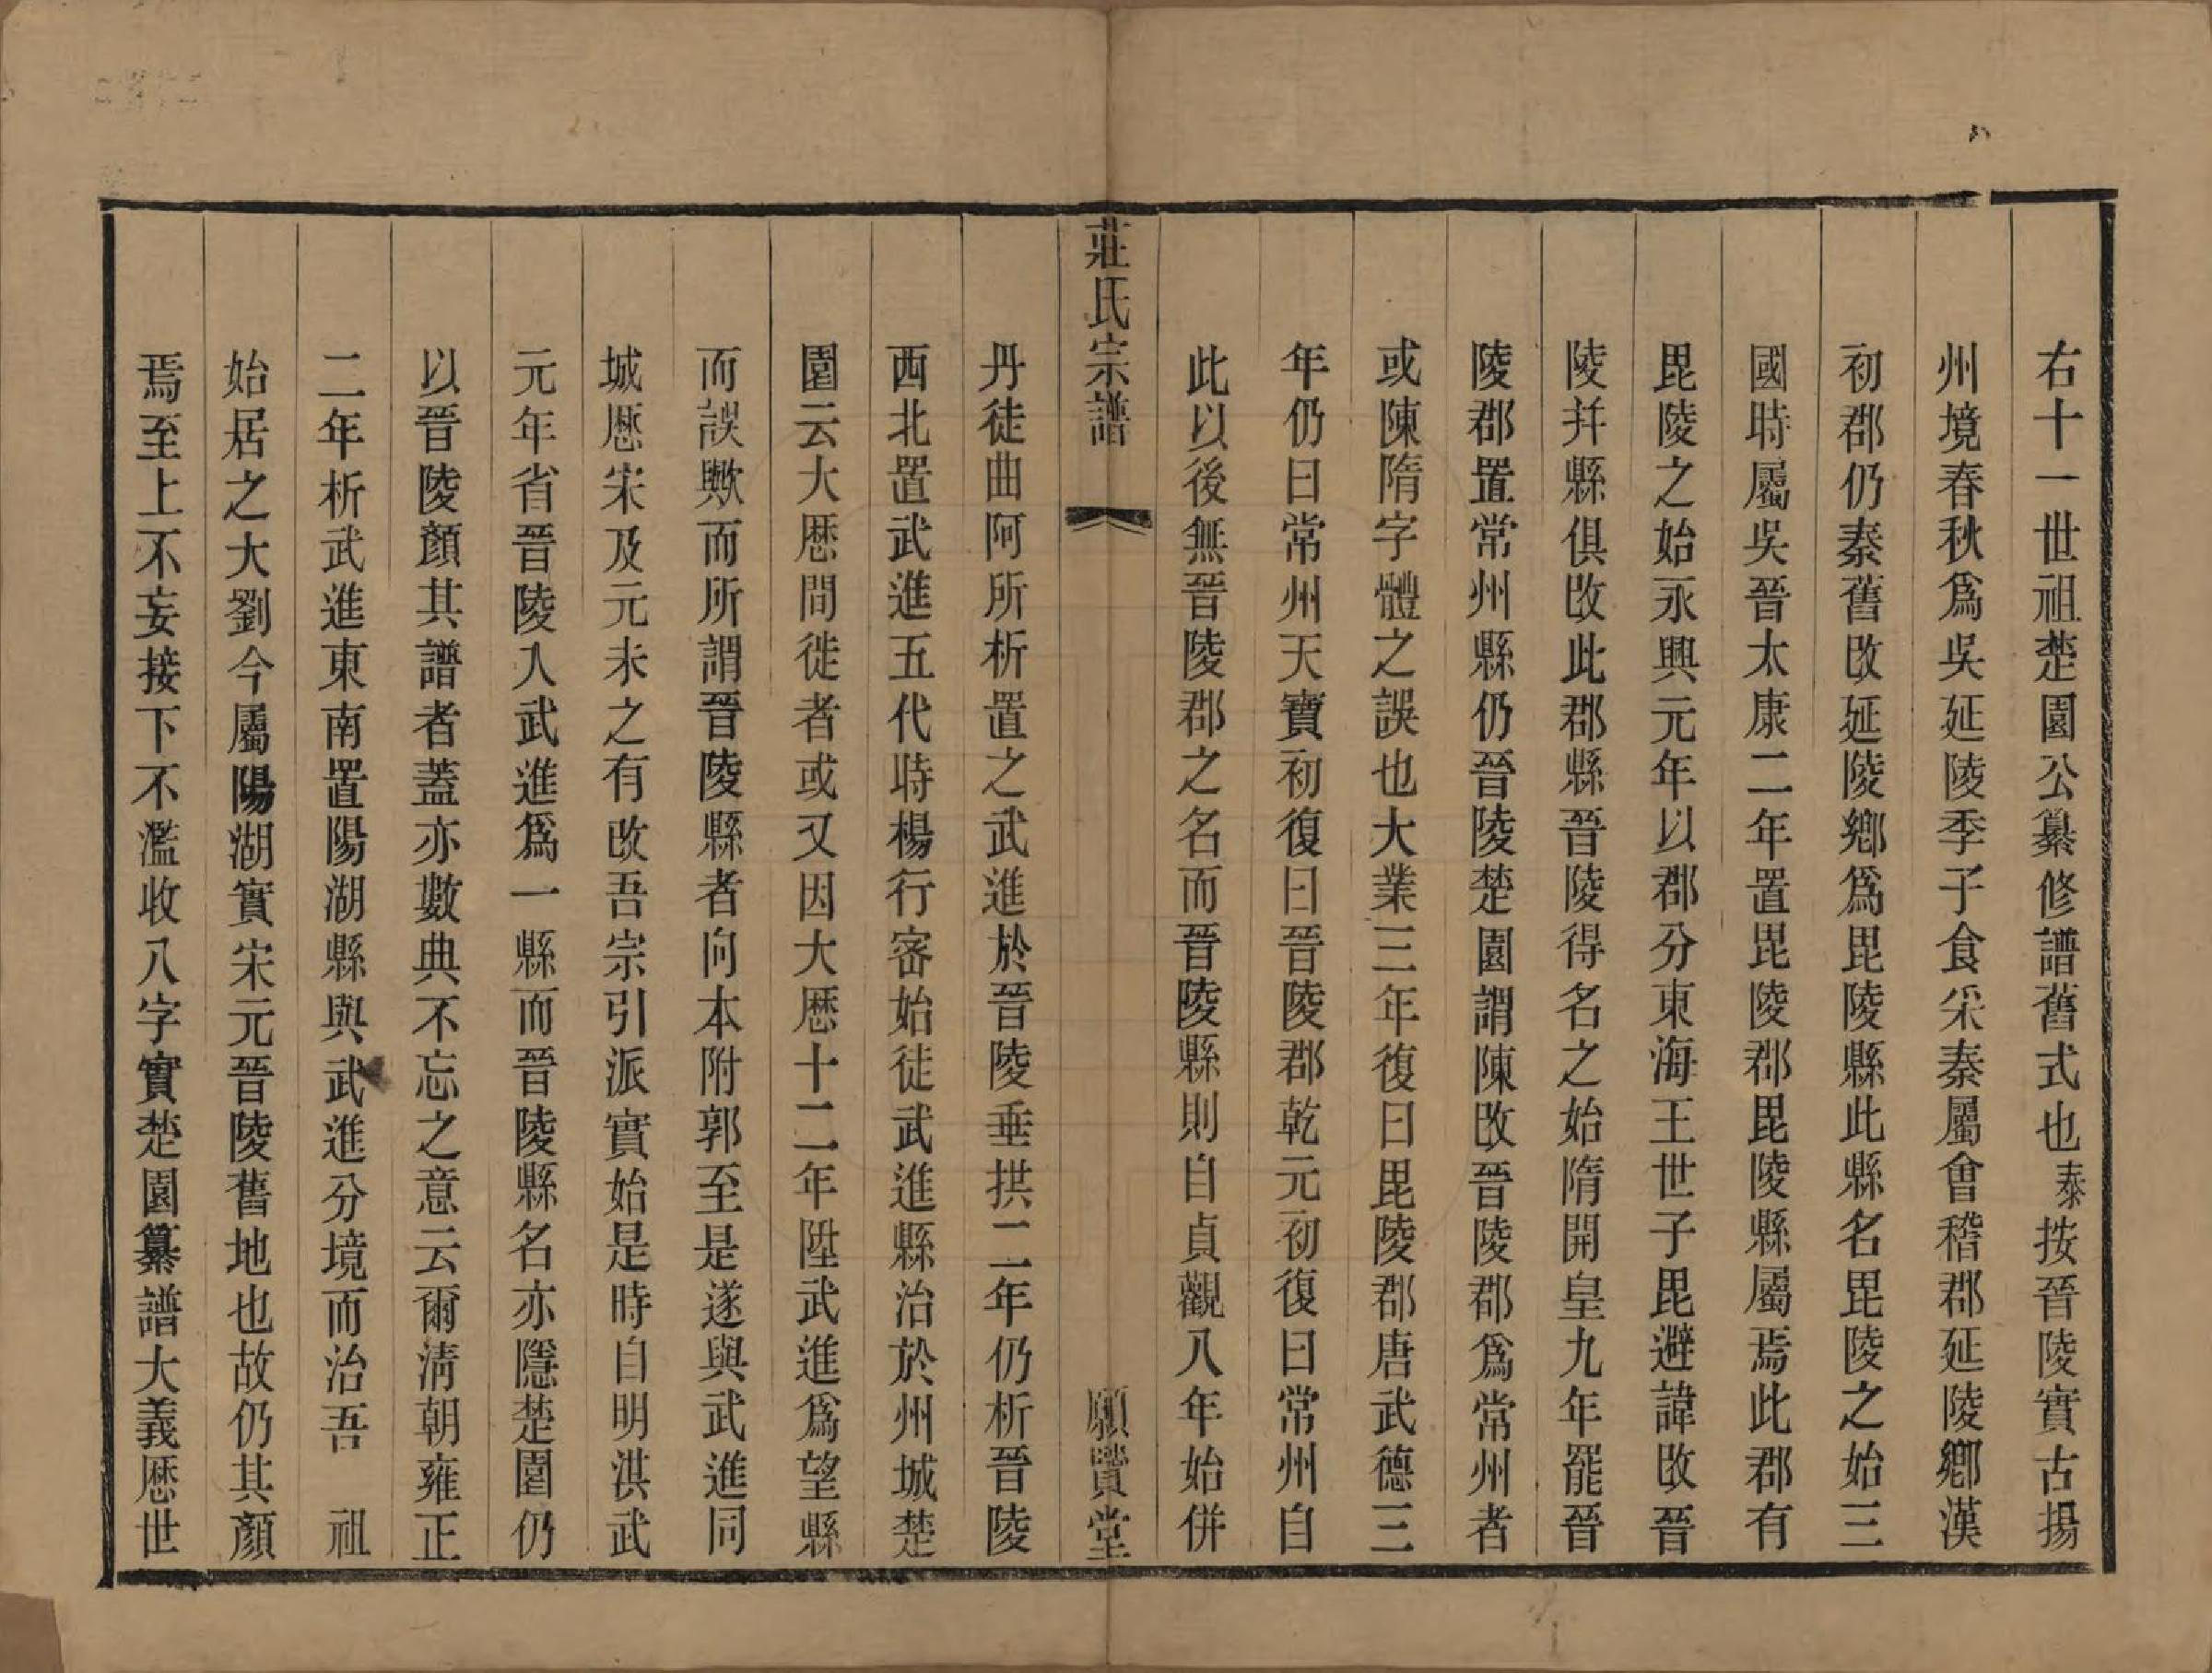 右十一世祖楚園公纂修譜舊式也泰按晉陵實古揚
州境春秋爲吳延陵季子食采秦屬會稽郡延陵鄉漢
初郡仍秦舊改延陵鄉爲毘陵縣此縣名毘陵之始三
國時屬吳晉太康二年置毘陵郡毘陵縣屬焉此郡有
毘陵之始永興元年以郡分東海王世子毘避諱改晉
陵并縣俱改此郡縣晉陵得名之始隋開皇九年罷晉
陵郡置常州縣仍晉陵楚園謂陳改晉陵郡爲常州者
或陳隋字體之誤也大業三年復曰毘陵郡唐武德三
年仍曰常州天寶初復曰晉陵郡乾元初復曰常州自
此以後無晉陵郡之名而晉陵縣則自貞觀八年始併
莊氏宗譜
願賢堂
丹徒曲阿所析置之武進於晉陵垂拱二年仍析晉陵
西北置武進五代時楊行密始徙武進縣治於州城楚
園云大歷間徙者或又因大歷十二年陞武進爲望縣
而誤歟而所謂晉陵縣者向本附郭至是遂與武進同
城歷宋及元未之有改吾宗引派實始是時自明洪武
元年省晉陵入武進爲一縣而晉陵縣名亦隱楚園仍
以晉陵顏其譜者蓋亦數典不忘之意云爾淸朝雍正
二年析武進東南置陽湖縣與武進分境而治吾　祖
始居之大劉今屬陽湖實宋元晉陵舊地也故仍其顏
焉至上不妄接下不濫收八字實楚園纂譜大義歷世